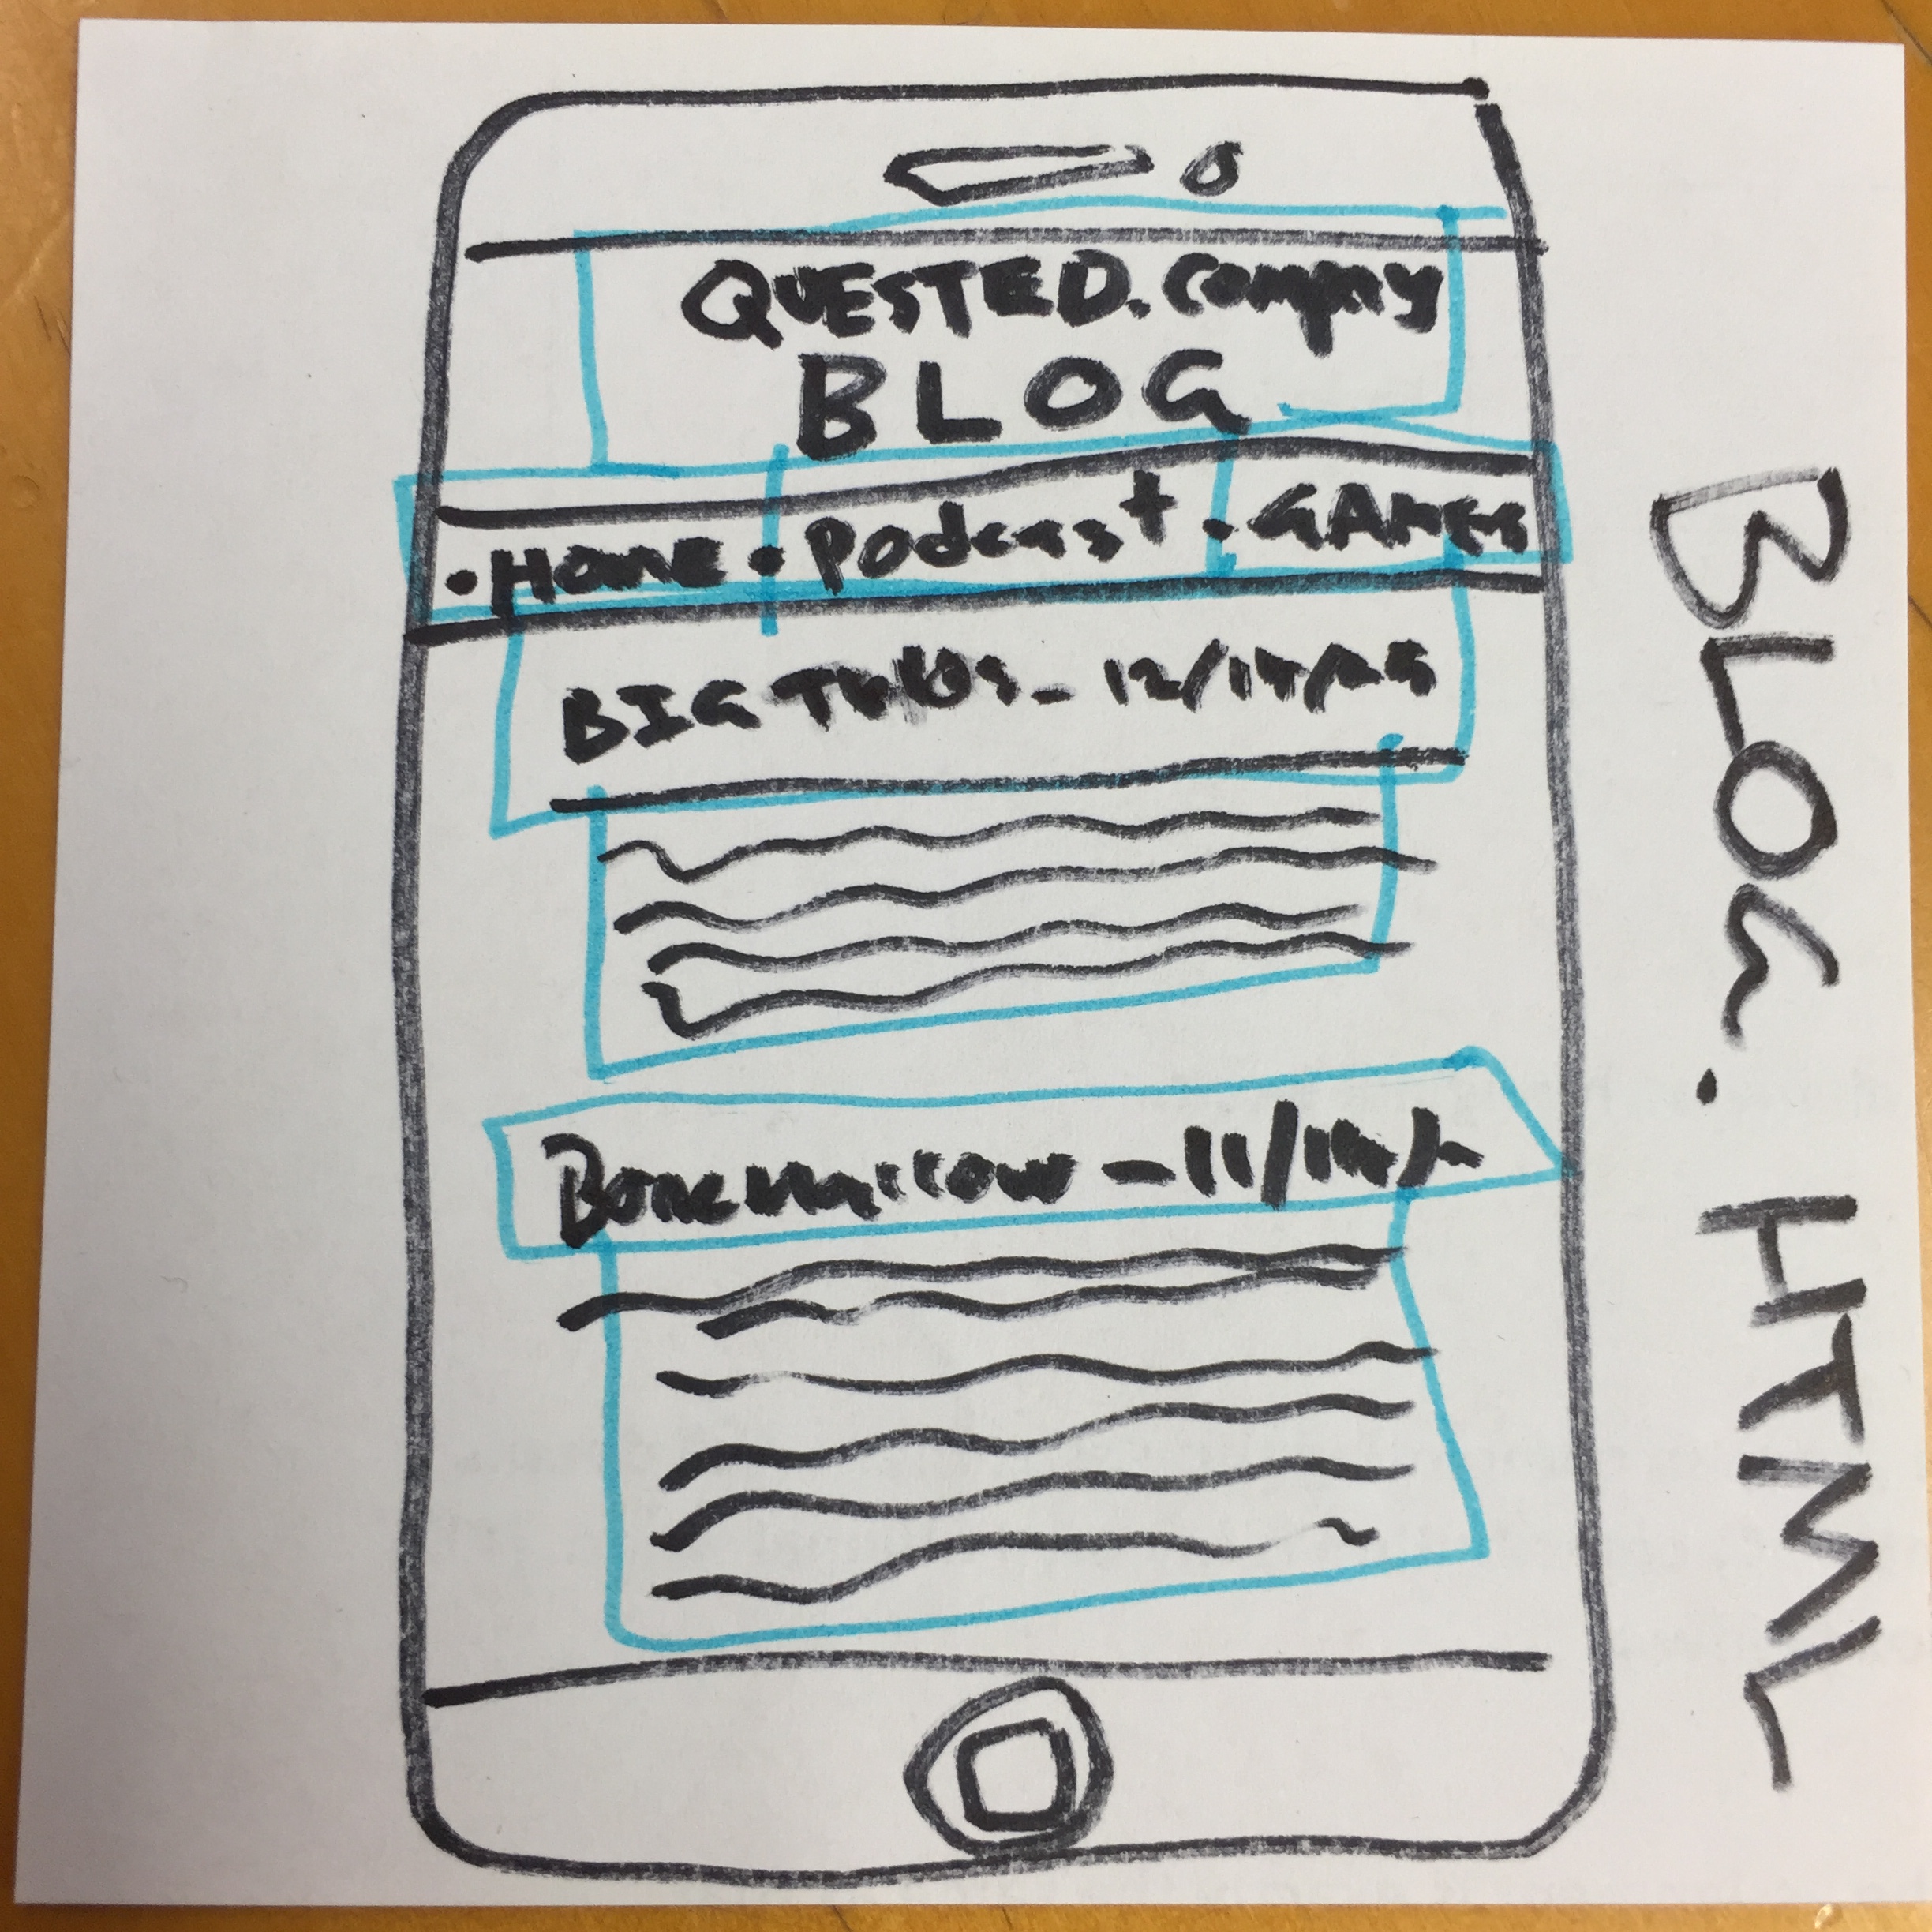 QUESTED.Company
BLOG
•Home •Podcast •GAMES
BIG - 12/14/
Bonemarrow - 11/
BLOG.HTML